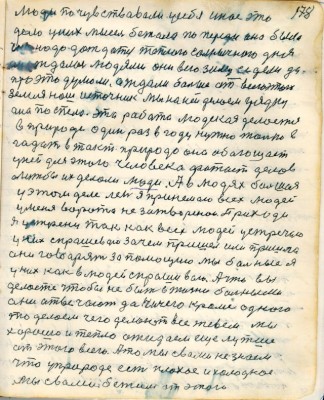 178
Люди почувствовали у себя иное это
дело у них мысль бежала по переди она была
надо дождату теплого солнышного дня
ждали людями они всю зиму сидели да
про это думою. а ждали больше от
Земля наш источник мы на ней делаем грядку
она поспела. Это работа людская делается
В природе один раз в году нужно только в
гадат в такт природо она обогощает
у ней для этого Человека фатает делов
лишбы их делали люди. А в людях большая
у этом деле лен Я принемаю всех людей
у меня ворота не затворяною Приходи
Я утрени так как всех людей устречаю
у них спрашеваю Зачем пришел или пришла
они говорят За помощию мы бальные я
у них как в людей спрашеваю. А что вы
делаете чтобы не быть в жизни больными
они отвечают да ничего кроме одного
то делаем чего делают все живем мы
хорошо и тепло ожидаем еще лутше
от этого всего. А то мы свами не знаем
что у природе есть плохое и холодное
мы свами бежим от этого